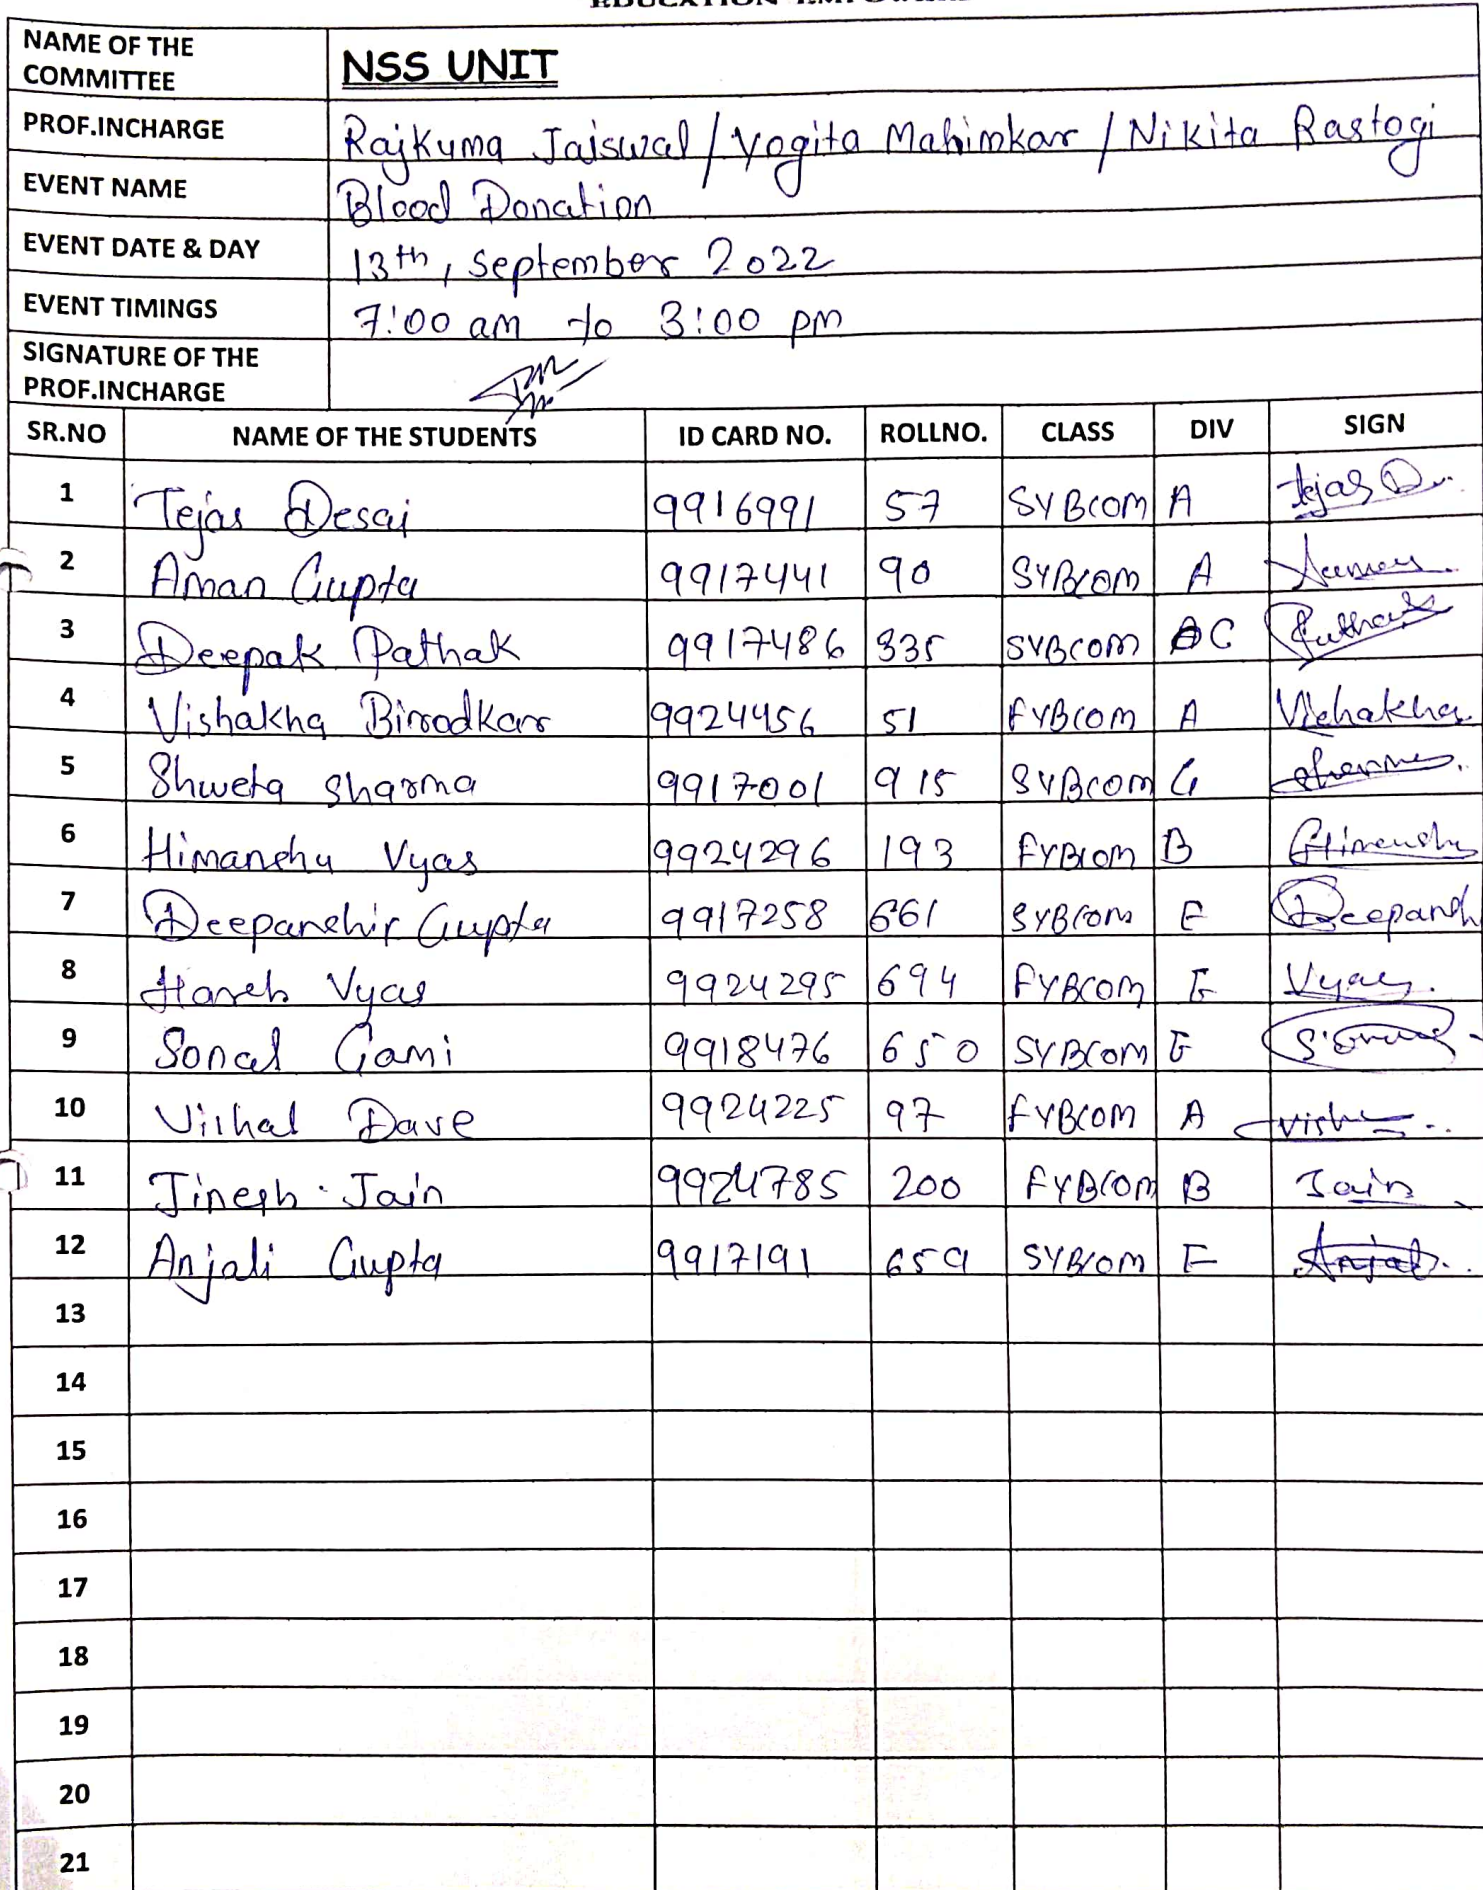 NAME OF THE COMMITTEE NSS UNIT
PROF.INCHARGE Rajkuma Jaiswal / Yogita Mahimkar / Nikita Rastogi
EVENT NAME Blood Donation
EVENT DATE & DAY 13th, September 2022
EVENT TIMINGS 7:00 am to 3:00 pm
SIGNATURE OF THE PROF.INCHARGE
SR.NO NAME OF THE STUDENTS ID CARD NO. ROLLNO. CLASS DIV SIGN
1 Tejas Desai 9916991 57 SYBCOM A Tejas D.
2 Aman Gupta 9917441 90 SYBCOM A
3 Deepak Pathak 9917486 335 SYBCOM C Pathak
4 Vishakha Birodkar 9924456 51 FYBCOM A Vishakha
5 Shweta Sharma 9917001 915 SYBCOM G
6 Himanshu Vyas 9924296 193 FYBCOM B Himanshu
7 Deepanshir Gupta 9917258 661 SYBCOM E Deepansh
8 Harsh Vyas 9924295 694 FYBCOM E Vyas
9 Sonal Gami 9918476 650 SYBCOM E
10 Vishal Dave 9924225 97 FYBCOM A
11 Jinesh Jain 9924785 200 FYBCOM B Jain
12 Anjali Gupta 9917191 659 SYBCOM E
13
14
15
16
17
18
19
20
21